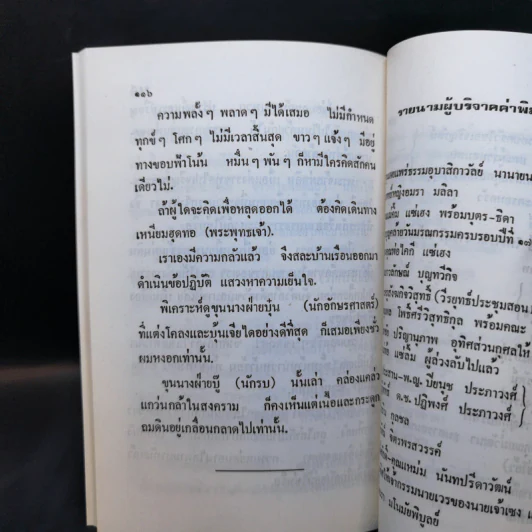 ๑๑๖
ความพลั้ง ๆ พลาด ๆ มีได้เสมอ ไม่มีกำหนด
ทุกข์ ๆ โศก ๆ ไม่มีเวลาสิ้นสุด ขาว ๆ แจ้ง ๆ มีอยู่
ทางขอบฟ้าโน้น หมื่น ๆ พัน ๆ ก็หามีใครคิดสักคน
เดียวไม่.
ถ้าผู้ใดจะคิดเพื่อหลุดออกได้ ต้องคิดเดินทาง
เหมือนฮุดทอ (พระพุทธเจ้า).
เราเองมีความกลัวแล้ว จึงสละบ้านเรือนออกมา
ดำเนินข้อปฏิบัติ แสวงหาความเย็นใจ.
พิเคราะห์ดูขุนนางฝ่ายบุ๋น (นักอักษรศาสตร์)
ที่แต่งโคลงและบุ้นเจียใดอย่างดีที่สุด ก็เสมอเพียงชั่ว
ผมหงอกเท่านั้น.
ขุนนางฝ่ายบู๊ (นักรบ) นั้นเล่า คล่องแคล่ว
แกว่นกล้าในสงคราม ก็คงเห็นแต่เนื้อและกระดูก
ถมดินอยู่เกลื่อนกลาดไปเท่านั้น.
รายนามผู้บริจาคค่าพิม
แพร่ธรรมอุบาสิกาวัลย์ นานายน
หญิงอมรา มลิลา
แซ่เฮง พร้อมบุตร-ธิดา
วันมรณกรรมครบรอบปีที่ ๑๗
ไคกี่ แซ่เฮง
ลักษณ์ บุญทวีกิจ
(วีรยุทธ์ประชุมสอน)
โพธิ์ศรีวิสุทธิกุล พร้อมคณะ
ปริญานุภาพ อุทิศส่วนกุศลให้
แซ่ลิ้ม ผู้ล่วงลับไปแล้ว
พ.ญ. ปิยนุช ประภาวงศ์
ด.ช. ปฏิพงศ์ ประภาวงศ์
กุลชล
จิตรพรสวรรค์
คุณแหม่ม นันทปรีดาวัฒน์
เจ้ากรรมนายเวรของนายเจ้าเซง
มโนมัยพิบูลย์